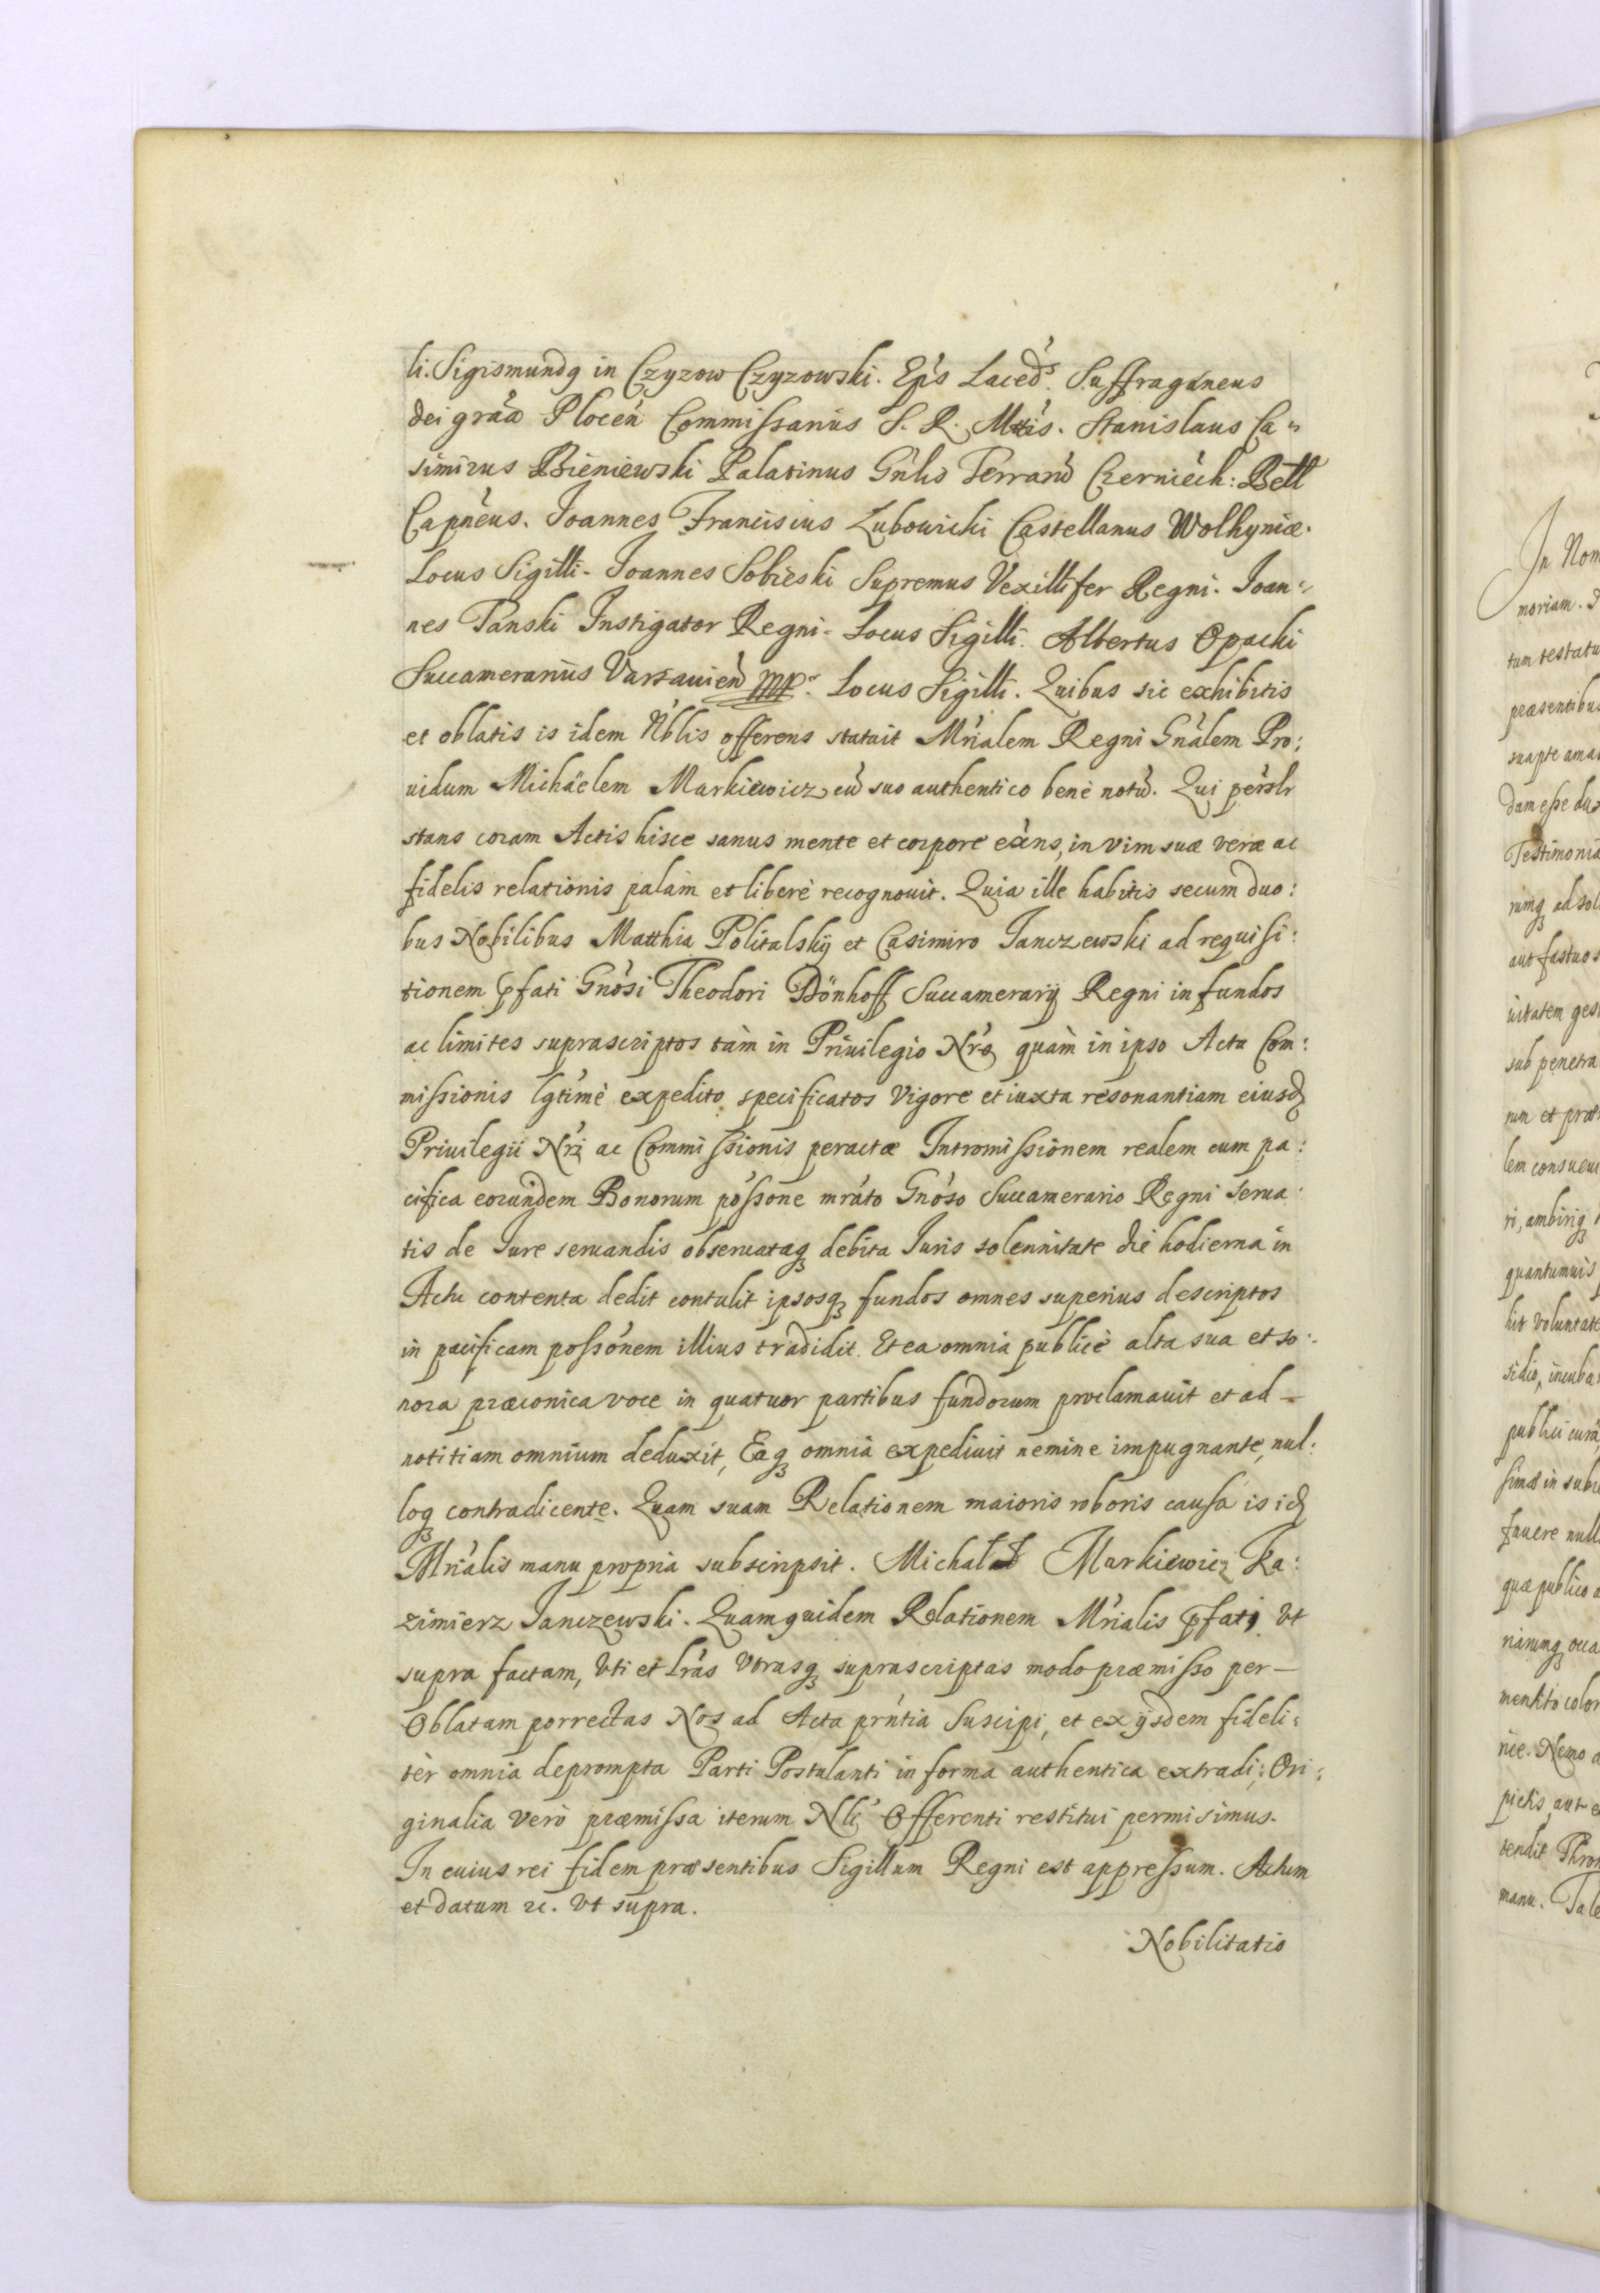 li. Sigismundq in Czyzow Czyzowski. Ep̓s Laced̓s. Suffraganeus
dei gra̓a Plocen̓ Commissarius S. R. Mttis. Stanislaus Ca=
simirus Bieniewski Palatinus Gn̓lis Terraru̓ Czerniech: Bett
Capn̓eus. Joannes Francisius Lubowicki Castellanus Wolhyniæ.
Locus Sigilli. Joannes Sobieski Supremus Vexillifer Regni. Joan=
nes Tanski Instigator Regni. Locus Sigilli. Albertus Opacki
Succamerarius Varsauien̓ mp. Locus Sigilli. Quibus sic exhibitis
et oblatis is idem N̓blis offerens statuit Mri̓alem Regni Gna̓lem Pro:
uidum Michäelem Markiewicz, cu̓ suo authentico benè notu̓. Qui perso̓lr
stans coram Actis hisce sanus mente et corpore exi̓ns, in vim suæ veræ ac
fidelis relationis palàm et liberè recognouit. Quia ille habitis secum duo:
bus Nobilibus Matthia Politalskÿ et Casimiro Janczewski ad requisi:
tionem pfati Gno̓si Theodori Dönhoff Succamerarÿ Regni in fundos
ac limites suprascriptos tàm in Priuilegio Nr̓o quàm in ipso Actu Com:
missionis lgti̓mè expedito specificatos Vigore et iuxta resonantiam eiusd
Priuilegii Nr̓i ac Commissionis peractæ Intromissionem realem cum pa:
cifica eorundem Bonorum po̓ssone mra̓to Gno̓so Succamerario Regni serua:
tis de Jure seruandis obseruataq debita Juris solennitate die hodierna in
Actu contenta dedit contulit ipsosq fundos omnes superius descriptos
in pacificam posso̓nem illius tradidit. Et ea omnia publicè alta sua et so:
nora præconica voce in quatuor partibus fundorum proclamauit et ad-
notitiam omnium deduxit, Eaq omnia expediuit nemine impugnante, nul:
loq contradicente. Quam suam Relationem maioris roboris causa is id
Mri̓alis manu propria subscripsit. Michal Markiewicz Ka:
zimierz Janczewski. Quam quidem Relationem Mri̓alis pfati vt
supra factam, vti et lra̓s vtrasq suprascriptas modo præmisso per-
Oblatam porrectas Nos ad Acta prn̓tia suscipi, et ex ÿsdem fideli:
tèr omnia deprompta Parti Postulanti in forma authentica extradi; Ori:
ginalia verò præmissa iterum Nli̓ Offerenti restitui permisimus.
In cuius rei fidem præsentibus Sigillum Regni est appressum. Actum
et datum &c. vt supra.
Nobilitatis
In Nom
moriam.
tum testatu
præsentibus
suapte ama
dam esse dus
Testimonia
rumq ad sol
aut fastuos
uitatem gest
sub penetra
rum et præ
lem consueu
ri, ambirig
quantumuis
hit voluntate
sidio, incuba
publici cura
simæ in subi
fauere null
quæ publico a
riarumq occa
mentito color
nie. Nemo a
pictis, aut e
tendit Thron
manu. Tale